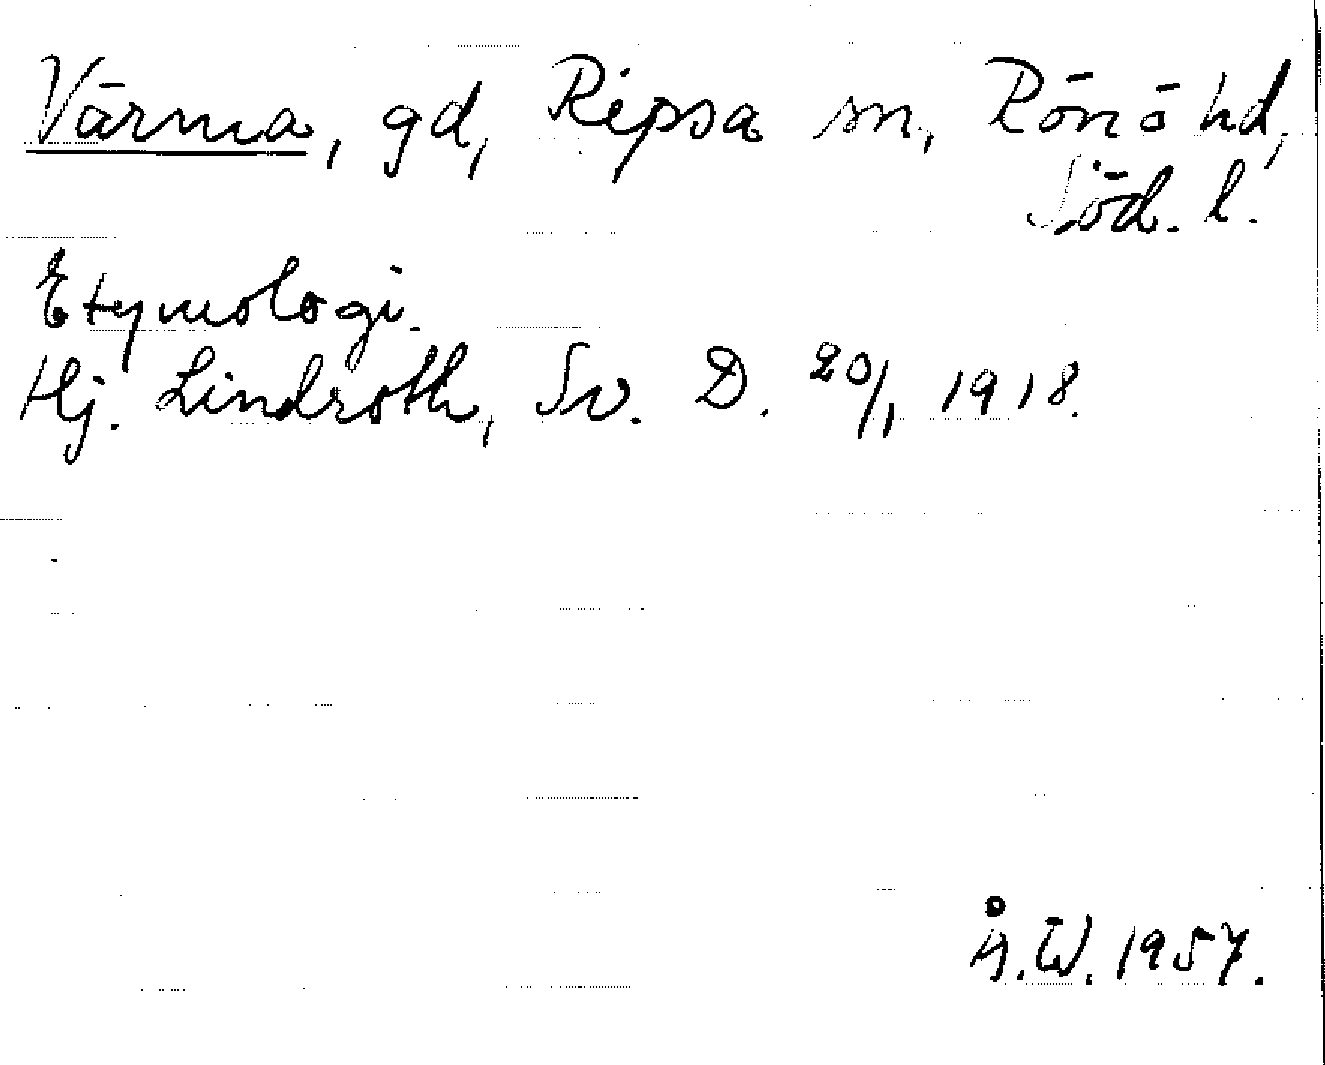 Värma, gd, Ripsa sn, Rönö hd,
Söd. l.
Etymologi.
Hj. Lindroth, Sv. D. 20/1 1918.
Å.W. 1957.